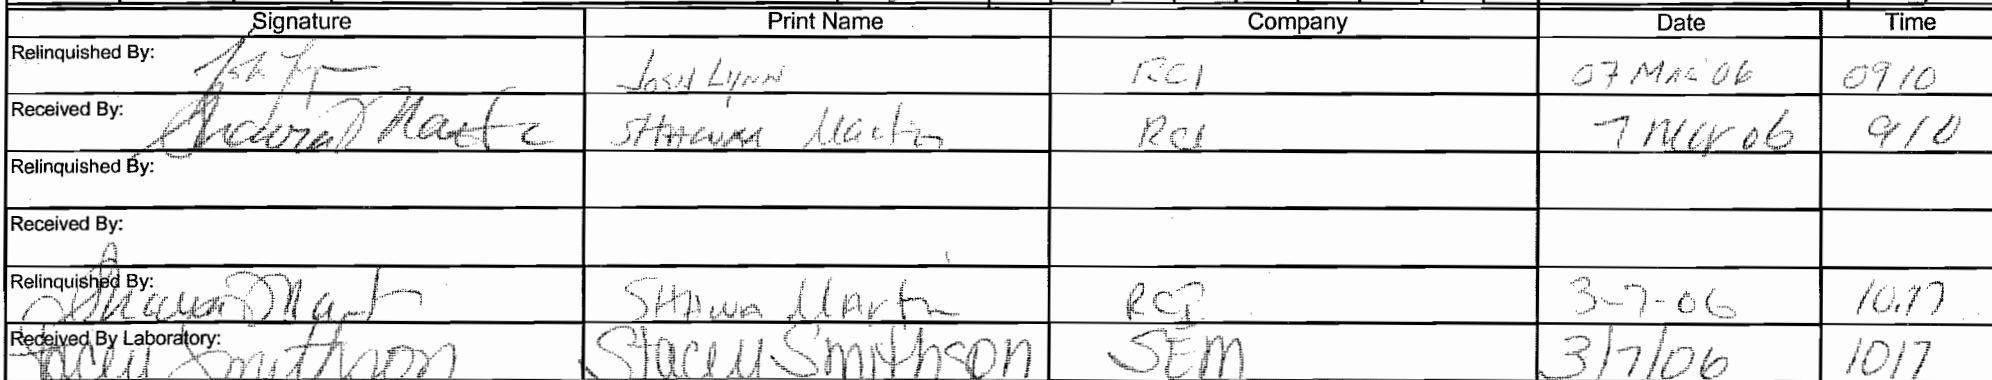 Signature Print Name Company Date Time
Relinquished By: Josh Lynn JOSH LYNN RCI 07 Mar 06 0910
Received By: Shawna Martin SHAWNA Martin RCI 7 Mar 06 910
Relinquished By:
Received By:
Relinquished By: Shawna Martin SHAWNA Martin RCI 3-7-06 10:17
Received By Laboratory: Stacey Smithson Stacey Smithson SEM 3/7/06 1017